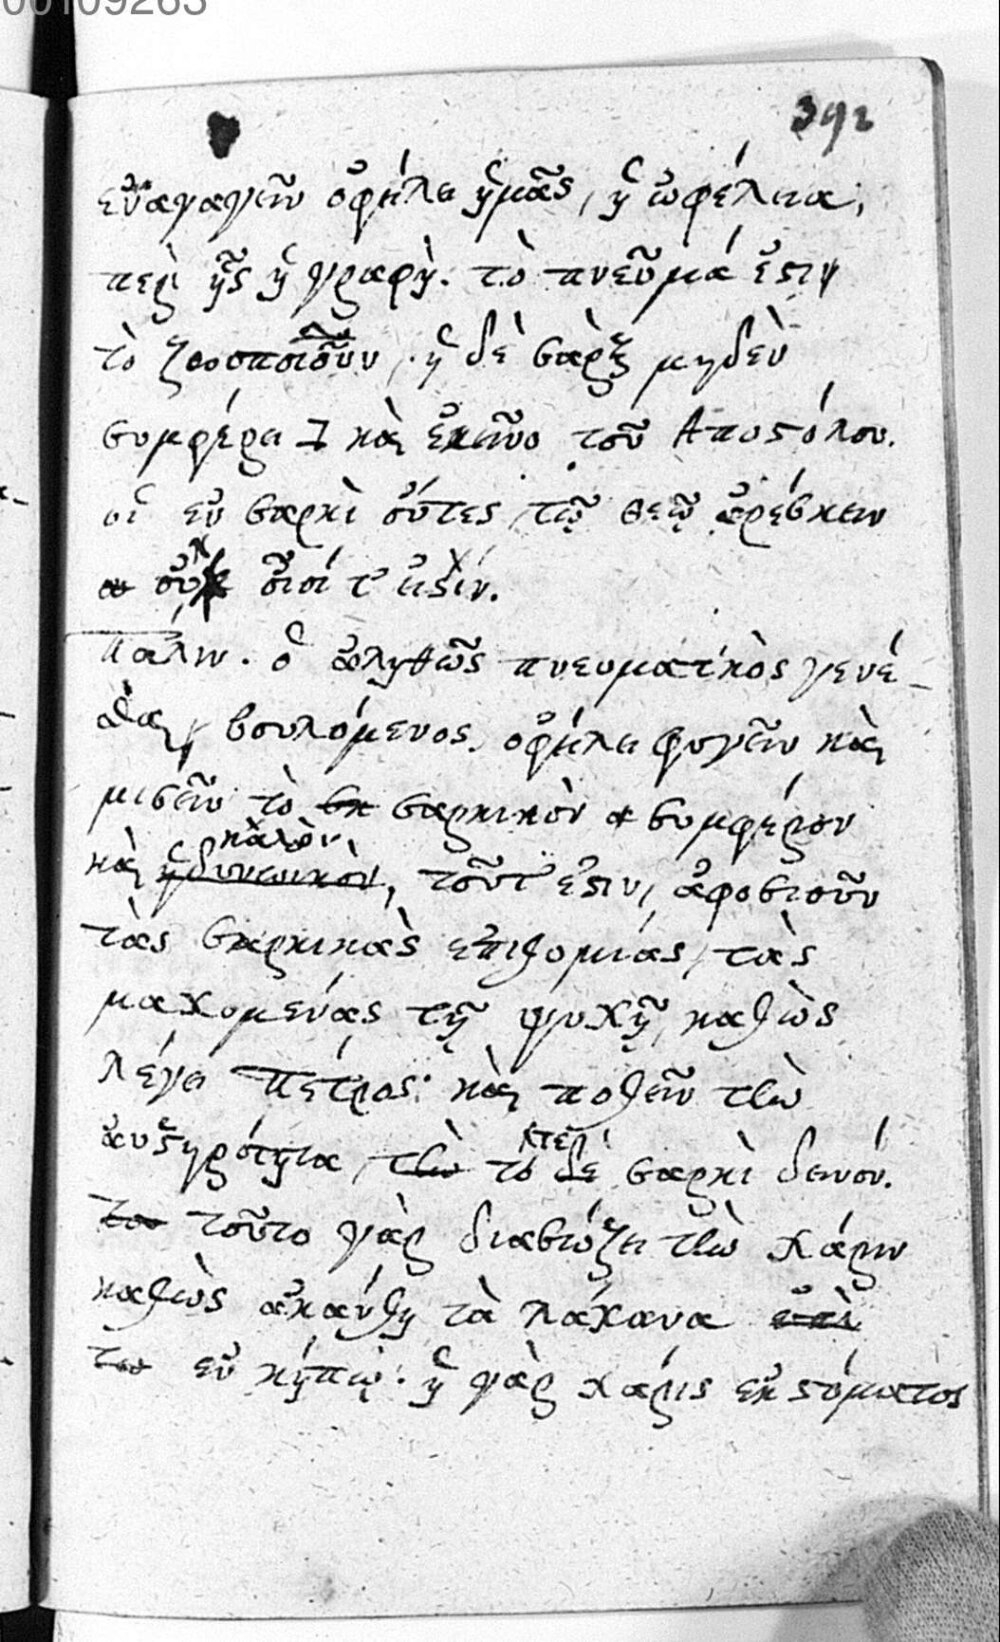 00109263
392
ἐναγαγεῖν ὀφήλει ἡμᾶς, ἡ ὠφέλεια,
περὶ ἧς ἡ γραφὴ. τὸ πνεῦμά ἐστιν
τὸ ζωοποιοῦν, ἡ δὲ σὰρξ μηδὲν
συμφέρει καὶ ἐκεῖνο τοῦ Ἀποστόλου.
οἱ ἐν σαρκὶ ὄντες, τῷ θεῷ ἀρέσκειν
οὐχ οἷοί τ' εἰσίν.
πάλιν. ὁ ἀληθῶς πνευματικὸς γενέ-
σθαι βουλόμενος. ὀφήλει φυγεῖν καὶ
μισεῖν τὸ σαρκικὸν συμφέρον
καλὸν
καὶ, τοῦτ' ἔστιν, ἀφοσιοῦν
τὰς σαρκικὰς ἐπιθυμίας, τὰς
μαχομένας τῇ ψυχῇ, καθὼς
λέγει Πέτρος· καὶ ποθεῖν τὴν
αὐστηρότητα, τὸ σαρκὶ δεινόν.
τοῦτο γὰρ διασώζει τὴν χάριν
καθὼς ἀκάνθη τὰ λάχανα
ἐν κήπῳ. ἡ γὰρ χάρις ἐκ στόματος